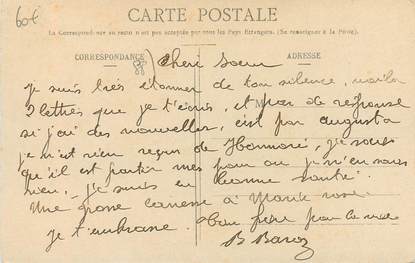 60€
CARTE POSTALE
La Correspondance au recto n'est pas acceptée par tous les Pays Étrangers. (Se renseigner à la Poste).
CORRESPONDANCE
ADRESSE
Cheri Sœur
je suis très étonner de ton silence, voila
2 lettres que je t'écris, et pas de réponse
si j'ai des nouvelles, c'est par augusta
je n'est rien reçu de, je sais
qu'il est partir mes pour ou je n'en sais
rien, je suis en bonne santé.
Une grosse caresse a Marie rose
je t'embrasse. Ton frère pour la vie
B Baroz